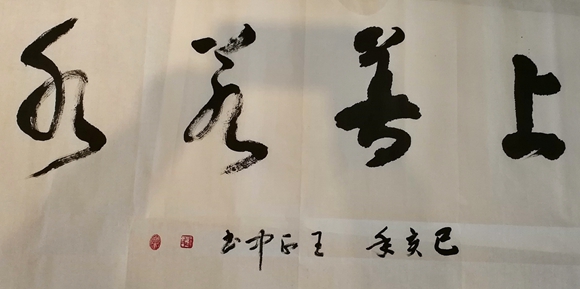 上善若水
己亥年 王正中书